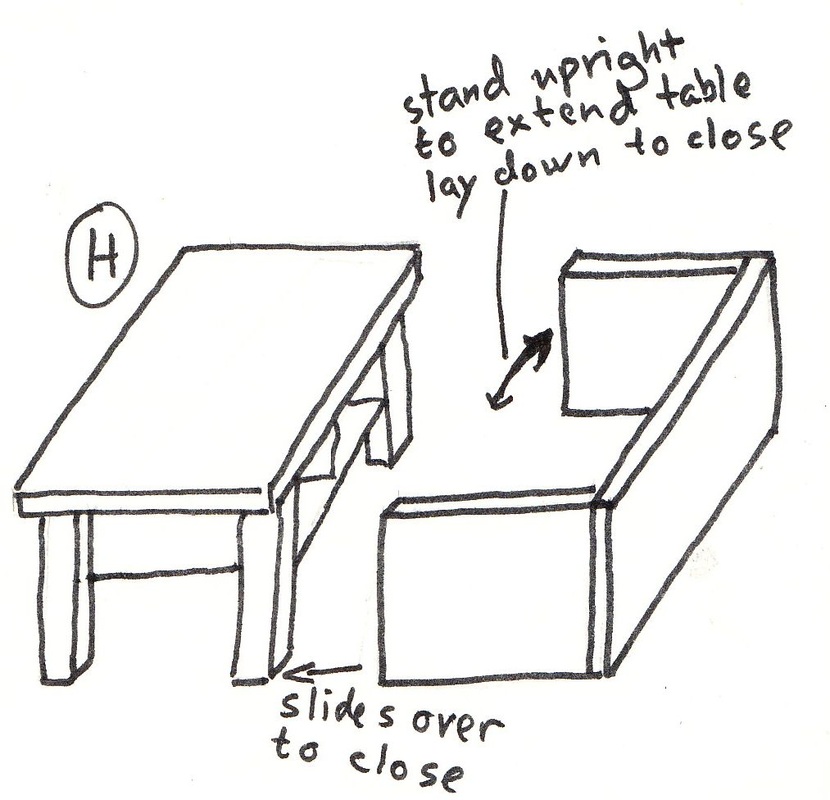 stand upright
to extend table
lay down to close
H
slides over
to close